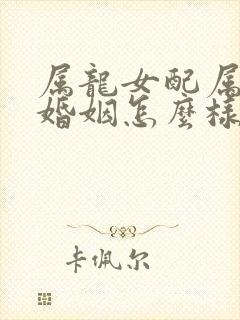 属龍女配属
婚姻怎麼樣
卡佩尔